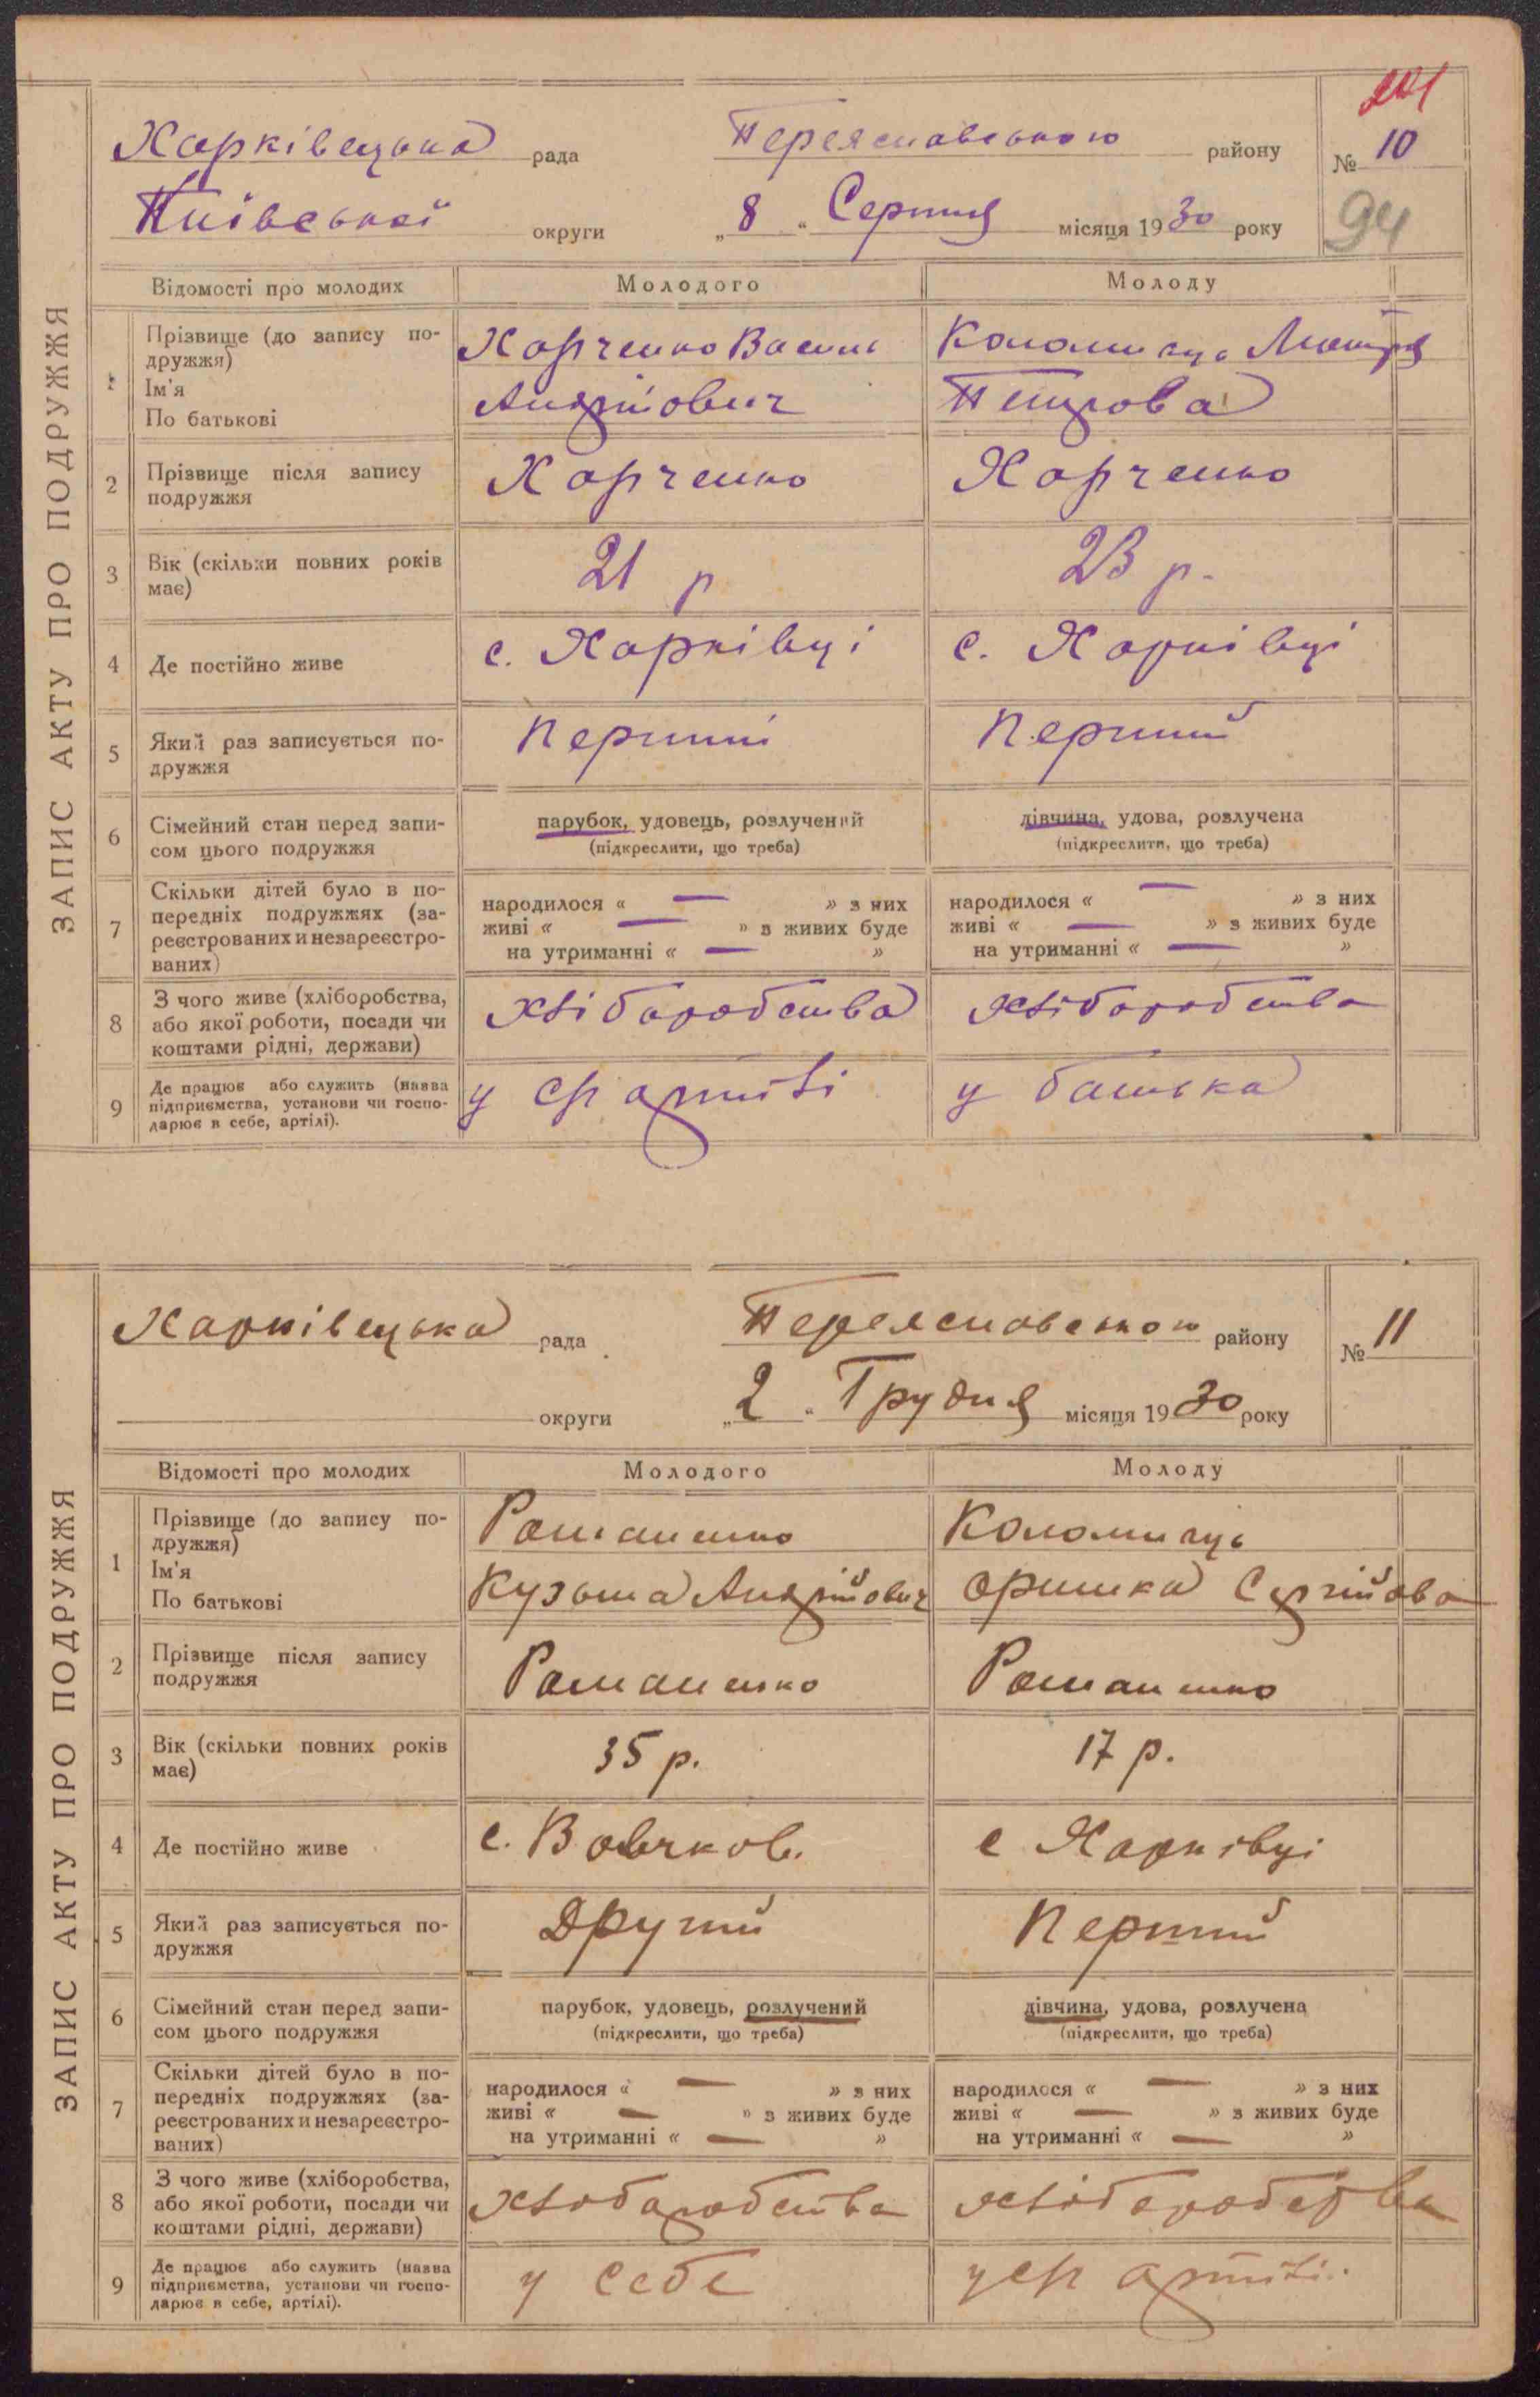 201
Харківецька рада Переяславського району № 10
Київської округи „ 8 “ Серпня місяця 1930 року 94
ЗАПИС АКТУ ПРО ПОДРУЖЖЯ
Відомості про молодих Молодого Молоду
1 Прізвище (до запису по-
дружжя)
Ім'я
По батькові
Харченко Василь
Андрійович
Коломиець
Петрова
2 Прізвище після запису
подружжя
Харченко Харченко
3 Вік (скільки повних років
має)
21 р 23 р.
4 Де постійно живе с. Харківці с. Харківці
5 Який раз записується по-
дружжя
Перший Перший
6 Сімейний стан перед запи-
сом цього подружжя
парубок, удовець, розлучений
(підкреслити, що треба)
дівчина, удова, розлучена
(підкреслити, що треба)
7 Скільки дітей було в по-
передніх подружжях (за-
реєстрованих и незареєстро-
ваних)
народилося « — » з них
живі « — » з живих буде
на утриманні « — »
народилося « — » з них
живі « — » з живих буде
на утриманні « — »
8 З чого живе (хліборобства,
або якої роботи, посади чи
коштами рідні, держави)
хліборобства хліборобства
9 Де працює або служить (назва
підприємства, установи чи госпо-
дарює в себе, артілі).
у ср артілі у батька
Харківецька рада Переяславського району № 11
округи „ 2 “ Грудня місяця 1930 року
ЗАПИС АКТУ ПРО ПОДРУЖЖЯ
Відомості про молодих Молодого Молоду
1 Прізвище (до запису по-
дружжя)
Ім'я
По батькові
Романенко
Кузьма Андрійович
Коломиець
Оришка Сергійова
2 Прізвище після запису
подружжя
Романенко Романенко
3 Вік (скільки повних років
має)
35 р. 17 р.
4 Де постійно живе с. Вовчков. с Харківці
5 Який раз записується по-
дружжя
Другий Перший
6 Сімейний стан перед запи-
сом цього подружжя
парубок, удовець, розлучений
(підкреслити, що треба)
дівчина, удова, розлучена
(підкреслити, що треба)
7 Скільки дітей було в по-
передніх подружжях (за-
реєстрованих и незареєстро-
ваних)
народилося « — » з них
живі « — » з живих буде
на утриманні « — »
народилося « — » з них
живі « — » з живих буде
на утриманні « — »
8 З чого живе (хліборобства,
або якої роботи, посади чи
коштами рідні, держави)
хліборобства хліборобства
9 Де працює або служить (назва
підприємства, установи чи госпо-
дарює в себе, артілі).
у себе у ср артілі.